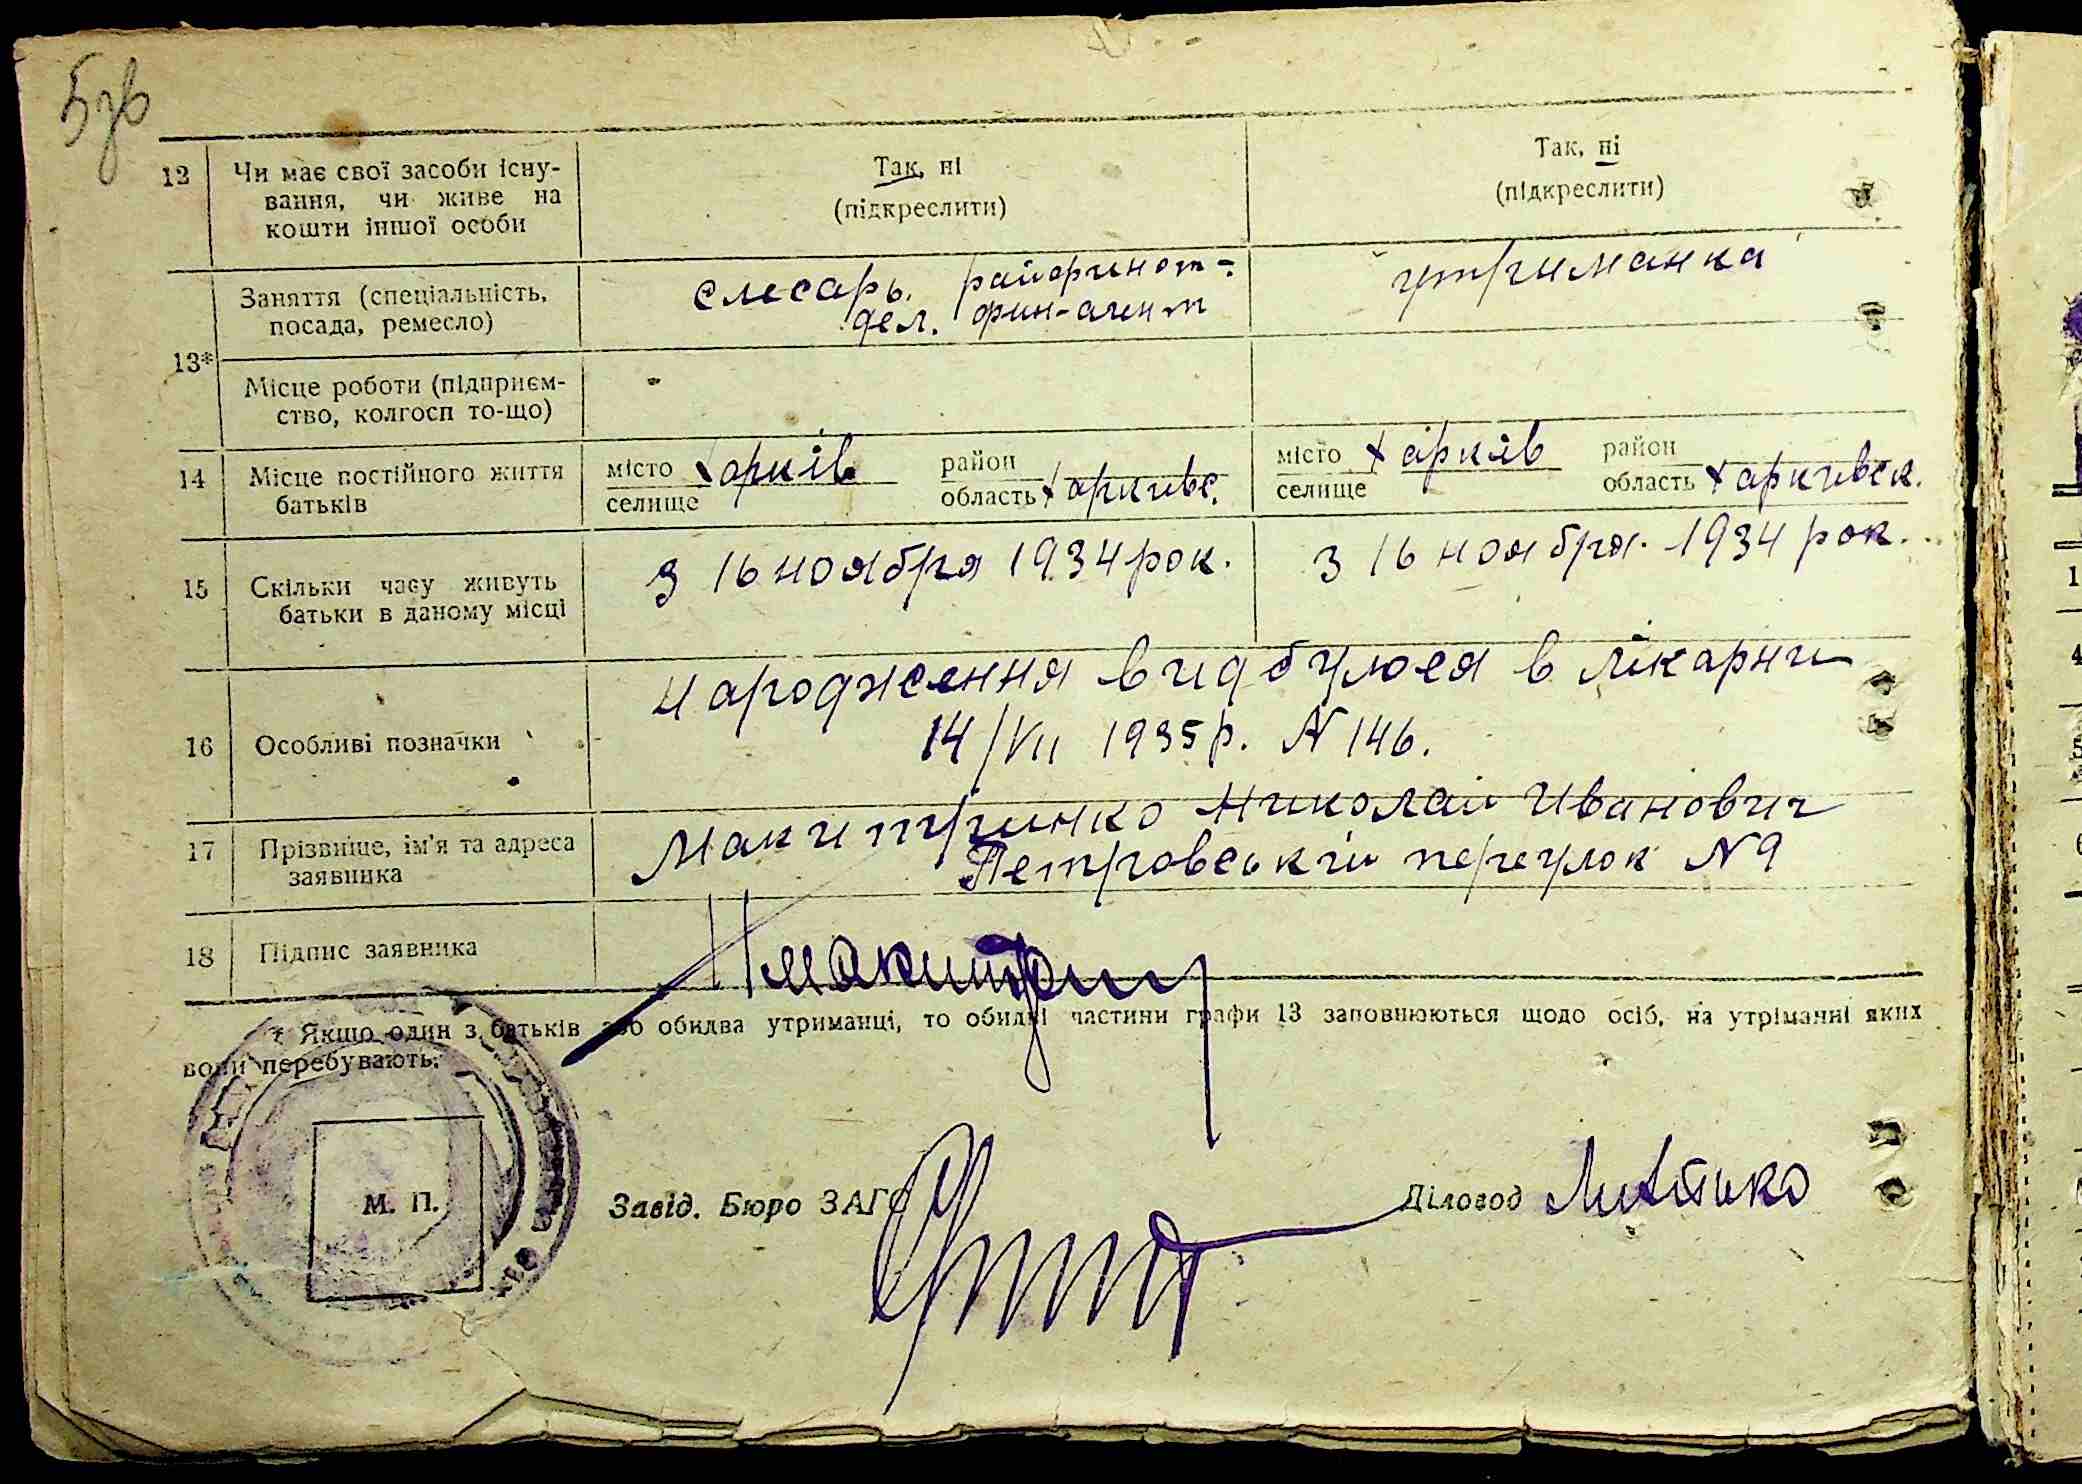 5зв
12 Чи має свої засоби існу-
вання, чи живе на
кошти іншої особи
Так, ні
(підкреслити)
Так, ні
(підкреслити)
13*
Заняття (спеціальність,
посада, ремесло)
слесарь. райфинот-
дел. фин-агент
утриманка
Місце роботи (підприєм-
ство, колгосп то-що)
14 Місце постійного життя
батьків
місто Харків район
селище область Харкивс.
місто Харків район
селище область Харкивск.
15 Скільки часу живуть
батьки в даному місці
З 16 ноября 1934 рок.
З 16 ноября. 1934 рок.
16 Особливі позначки
народження видбулося в лікарни
14/VII 1935 р. N 146.
17 Прізвище, ім'я та адреса
заявника
Макитринко Николай Иванович
Петровський переулок N 9
18 Підпис заявника
* Якщо один з батьків або обидва утриманці, то обидві частини графи 13 заповнюються щодо осіб, на утріманні яких
вони перебувають.
М. П.
Завід. Бюро ЗАГС
Діловод